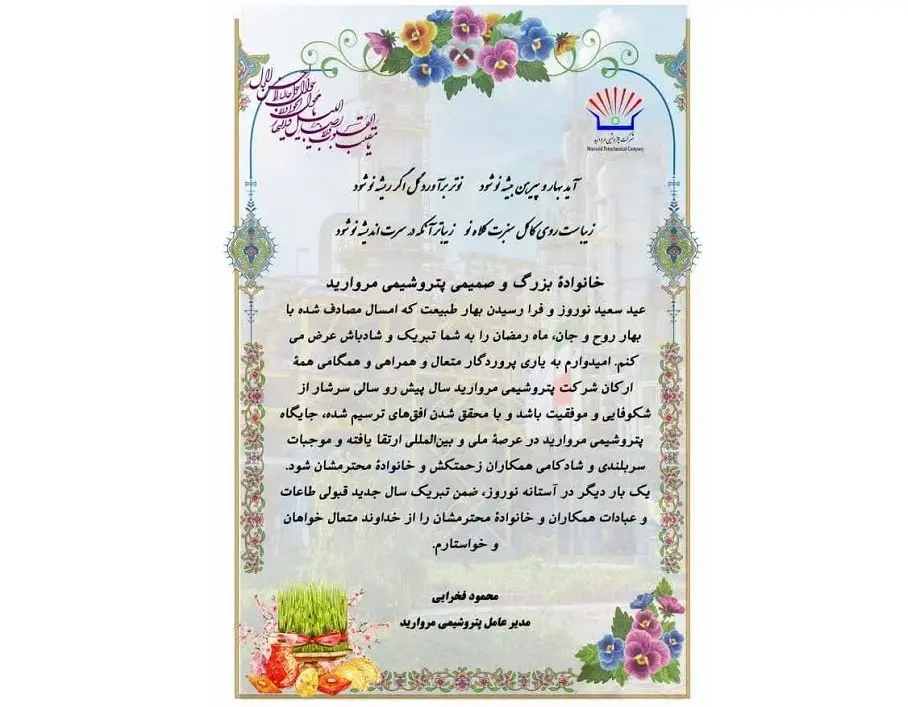 یا مقلب القلوب و الابصار
شرکت پتروشیمی مروارید
Morvarid Petrochemical Company
آید بهار و پیرهن بیشه نو شود نوتر برآورد گل اگر ریشه نو شود
زیباست روی کاکل سبزت کلاه نو زیباتر آنکه در سرت اندیشه نو شود
خانوادهٔ بزرگ و صمیمی پتروشیمی مروارید
عید سعید نوروز و فرا رسیدن بهار طبیعت که امسال مصادف شده با
بهار روح و جان، ماه رمضان را به شما تبریک و شادباش عرض می
کنم. امیدوارم به یاری پروردگار متعال و همراهی و همگامی همهٔ
ارکان شرکت پتروشیمی مروارید سال پیش رو سالی سرشار از
شکوفایی و موفقیت باشد و با محقق شدن افق‌های ترسیم شده، جایگاه
پتروشیمی مروارید در عرصهٔ ملی و بین‌المللی ارتقا یافته و موجبات
سربلندی و شادکامی همکاران زحمتکش و خانوادهٔ محترمشان شود.
یک بار دیگر در آستانه نوروز، ضمن تبریک سال جدید قبولی طاعات
و عبادات همکاران و خانوادهٔ محترمشان را از خداوند متعال خواهان
و خواستارم.
محمود فخرایی
مدیر عامل پتروشیمی مروارید